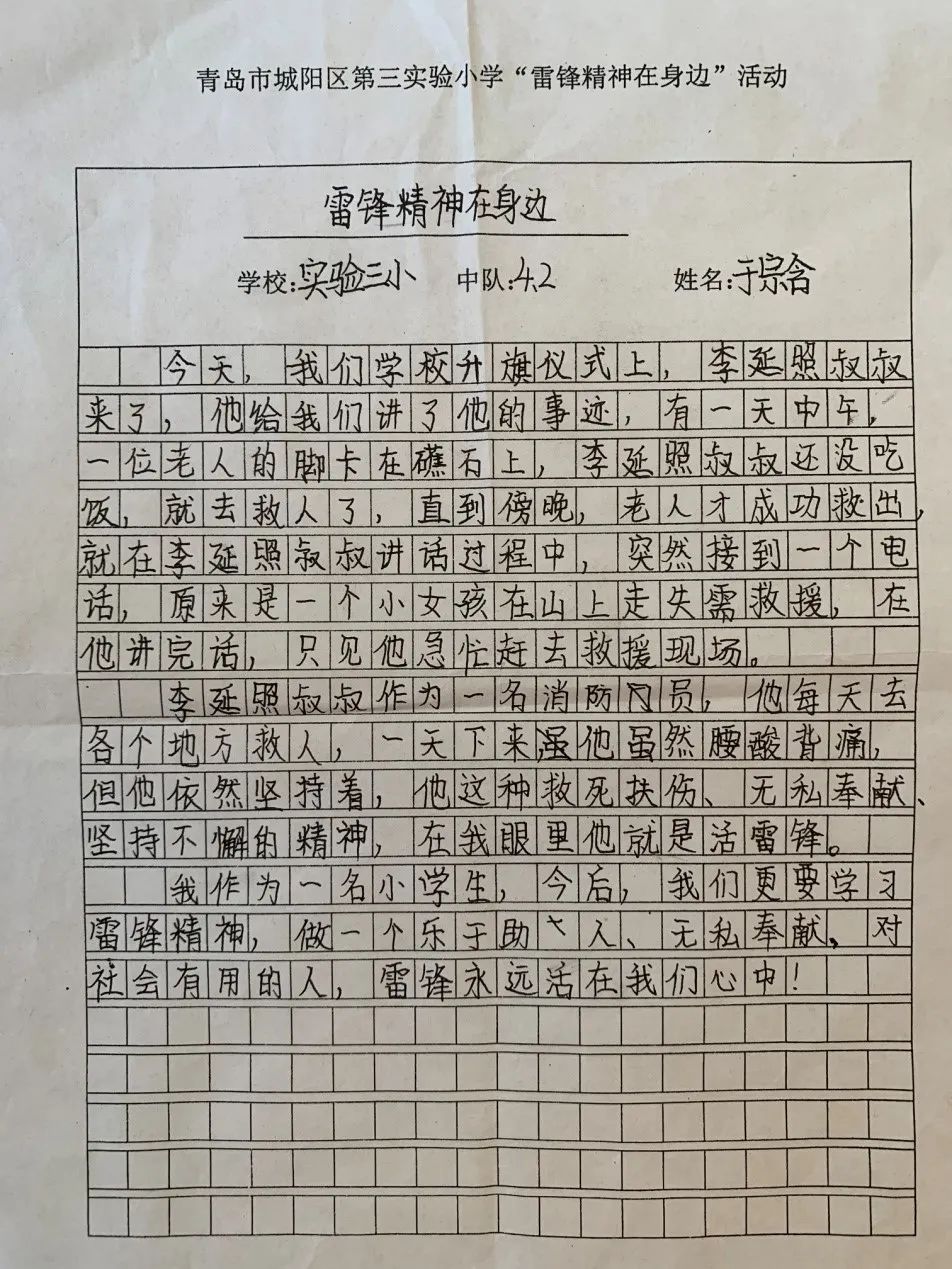 青岛市城阳区第三实验小学“雷锋精神在身边”活动
雷锋精神在身边
学校:实验三小 中队:4.2 姓名:于宗含
今天，我们学校升旗仪式上，李延照叔叔
来了，他给我们讲了他的事迹，有一天中午，
一位老人的脚卡在礁石上，李延照叔叔还没吃
饭，就去救人了，直到傍晚，老人才成功救出，
就在李延照叔叔讲话过程中，突然接到一个电
话，原来是一个小女孩在山上走失需救援，在
他讲完话，只见他急忙赶去救援现场。
李延照叔叔作为一名消防员，他每天去
各个地方救人，一天下来虽他虽然腰酸背痛，
但他依然坚持着，他这种救死扶伤、无私奉献、
坚持不懈的精神，在我眼里他就是活雷锋。
我作为一名小学生，今后，我们更要学习
雷锋精神，做一个乐于助人、无私奉献、对
社会有用的人，雷锋永远活在我们心中！